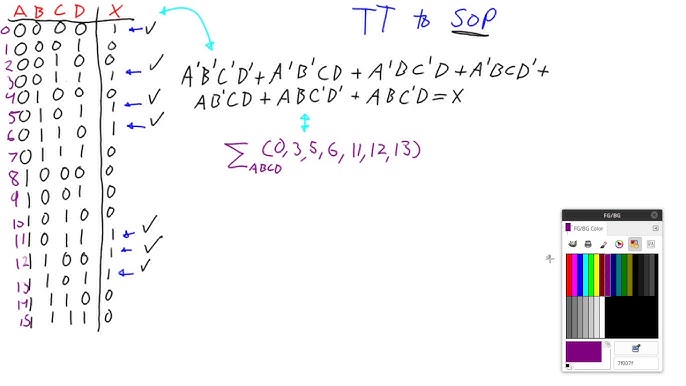 A B C D X
TT to SOP
0 0 0 0 0 1 ✓
1 0 0 0 1 0
2 0 0 1 0 0
3 0 0 1 1 1 ✓
4 0 1 0 0 0
5 0 1 0 1 1 ✓
6 0 1 1 0 1 ✓
7 0 1 1 1 0
8 1 0 0 0 0
9 1 0 0 1 0
10 1 0 1 0 0
11 1 0 1 1 1 ✓
12 1 1 0 0 1 ✓
13 1 1 0 1 1 ✓
14 1 1 1 0 0
15 1 1 1 1 0
A'B'C'D' + A'B'CD + A'BC'D + A'BCD' +
AB'CD + ABC'D' + ABC'D = X
∑ABCD (0, 3, 5, 6, 11, 12, 13)
FG/BG
FG/BG Color
7f007f